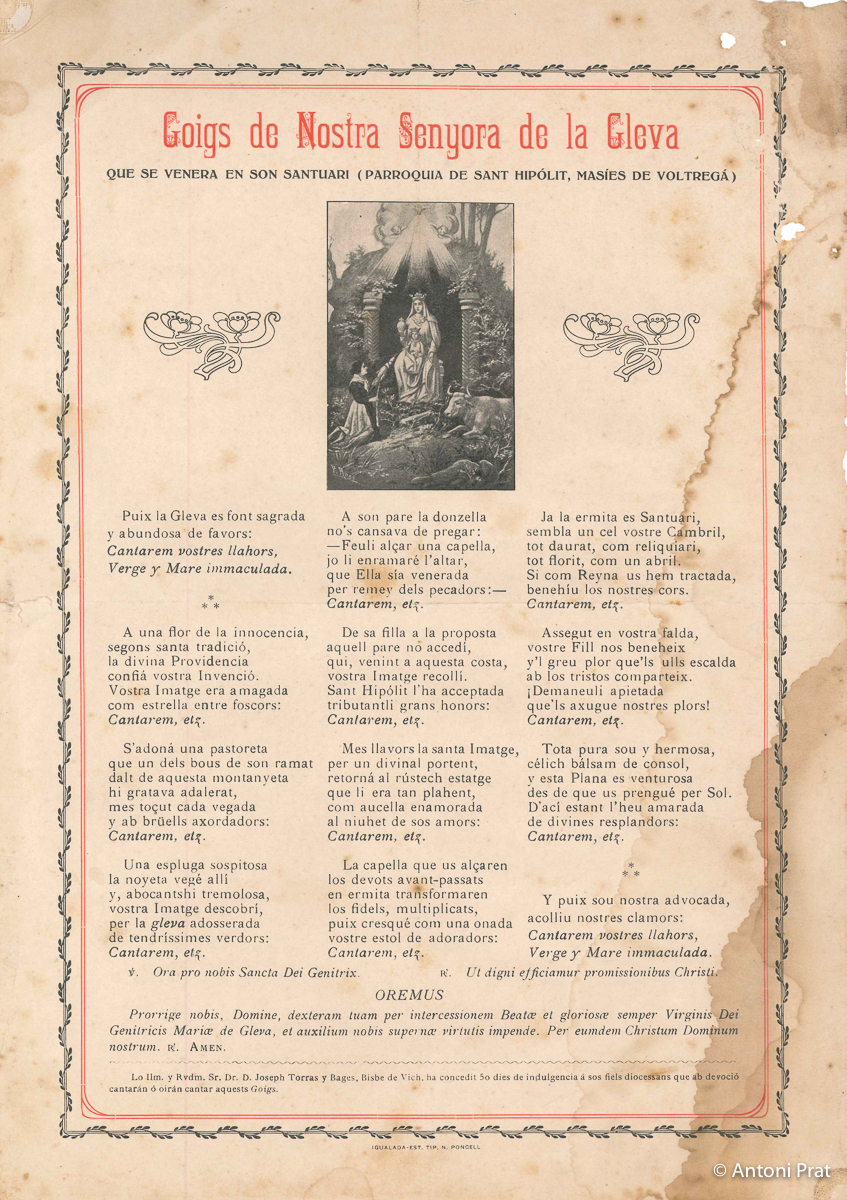 Goigs de Nostra Senyora de la Gleva
QUE SE VENERA EN SON SANTUARI (PARROQUIA DE SANT HIPÓLIT, MASÍES DE VOLTREGÁ)
Puix la Gleva es font sagrada
y abundosa de favors:
Cantarem vostres llahors,
Verge y Mare immaculada.
*
* *
A una flor de la innocencia,
segons santa tradició,
la divina Providencia
confiá vostra Invenció.
Vostra Imatge era amagada
com estrella entre foscors:
Cantarem, etz.
S'adoná una pastoreta
que un dels bous de son ramat
dalt de aquesta montanyeta
hi gratava adalerat,
mes toçut cada vegada
y ab brüells axordadors:
Cantarem, etz.
Una espluga sospitosa
la noyeta vegé allí
y, abocantshi tremolosa,
vostra Imatge descobrí,
per la gleva adosserada
de tendríssimes verdors:
Cantarem, etz.
A son pare la donzella
no's cansava de pregar:
—Feuli alçar una capella,
jo li enramaré l'altar,
que Ella sía venerada
per remey dels pecadors:—
Cantarem, etz.
De sa filla a la proposta
aquell pare no accedí,
qui, venint a aquesta costa,
vostra Imatge recollí.
Sant Hipólit l'ha acceptada
tributantli grans honors:
Cantarem, etz.
Mes llavors la santa Imatge,
per un divinal portent,
retorná al rústech estatge
que li era tan plahent,
com aucella enamorada
al niuhet de sos amors:
Cantarem, etz.
La capella que us alçaren
los devots avant-passats
en ermita transformaren
los fidels, multiplicats,
puix cresqué com una onada
vostre estol de adoradors:
Cantarem, etz.
Ja la ermita es Santuari,
sembla un cel vostre Cambril,
tot daurat, com reliquiari,
tot florit, com un abril.
Si com Reyna us hem tractada,
benehíu los nostres cors.
Cantarem, etz.
Assegut en vostra falda,
vostre Fill nos beneheix
y'l greu plor que'ls ulls escalda
ab los tristos comparteix.
¡Demaneuli apietada
que'ls axugue nostres plors!
Cantarem, etz.
Tota pura sou y hermosa,
célich bálsam de consol,
y esta Plana es venturosa
des de que us prengué per Sol.
D'ací estant l'heu amarada
de divines resplandors:
Cantarem, etz.
*
* *
Y puix sou nostra advocada,
acolliu nostres clamors:
Cantarem vostres llahors,
Verge y Mare immaculada.
℣. Ora pro nobis Sancta Dei Genitrix. ℟. Ut digni efficiamur promissionibus Christi.
OREMUS
Prorrige nobis, Domine, dexteram tuam per intercessionem Beatæ et gloriosæ semper Virginis Dei
Genitricis Mariæ de Gleva, et auxilium nobis supernæ virtutis impende. Per eumdem Christum Dominum
nostrum. ℟. AMEN.
Lo Ilm. y Rvdm. Sr. Dr. D. Joseph Torras y Bages, Bisbe de Vich, ha concedit 50 dies de indulgencia á sos fiels diocessans que ab devoció
cantarán ó oirán cantar aquests Goigs.
IGUALADA-EST. TIP. N. PONCELL
© Antoni Prat